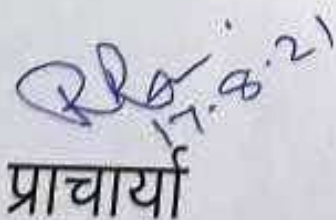 17.8.21
प्राचार्या